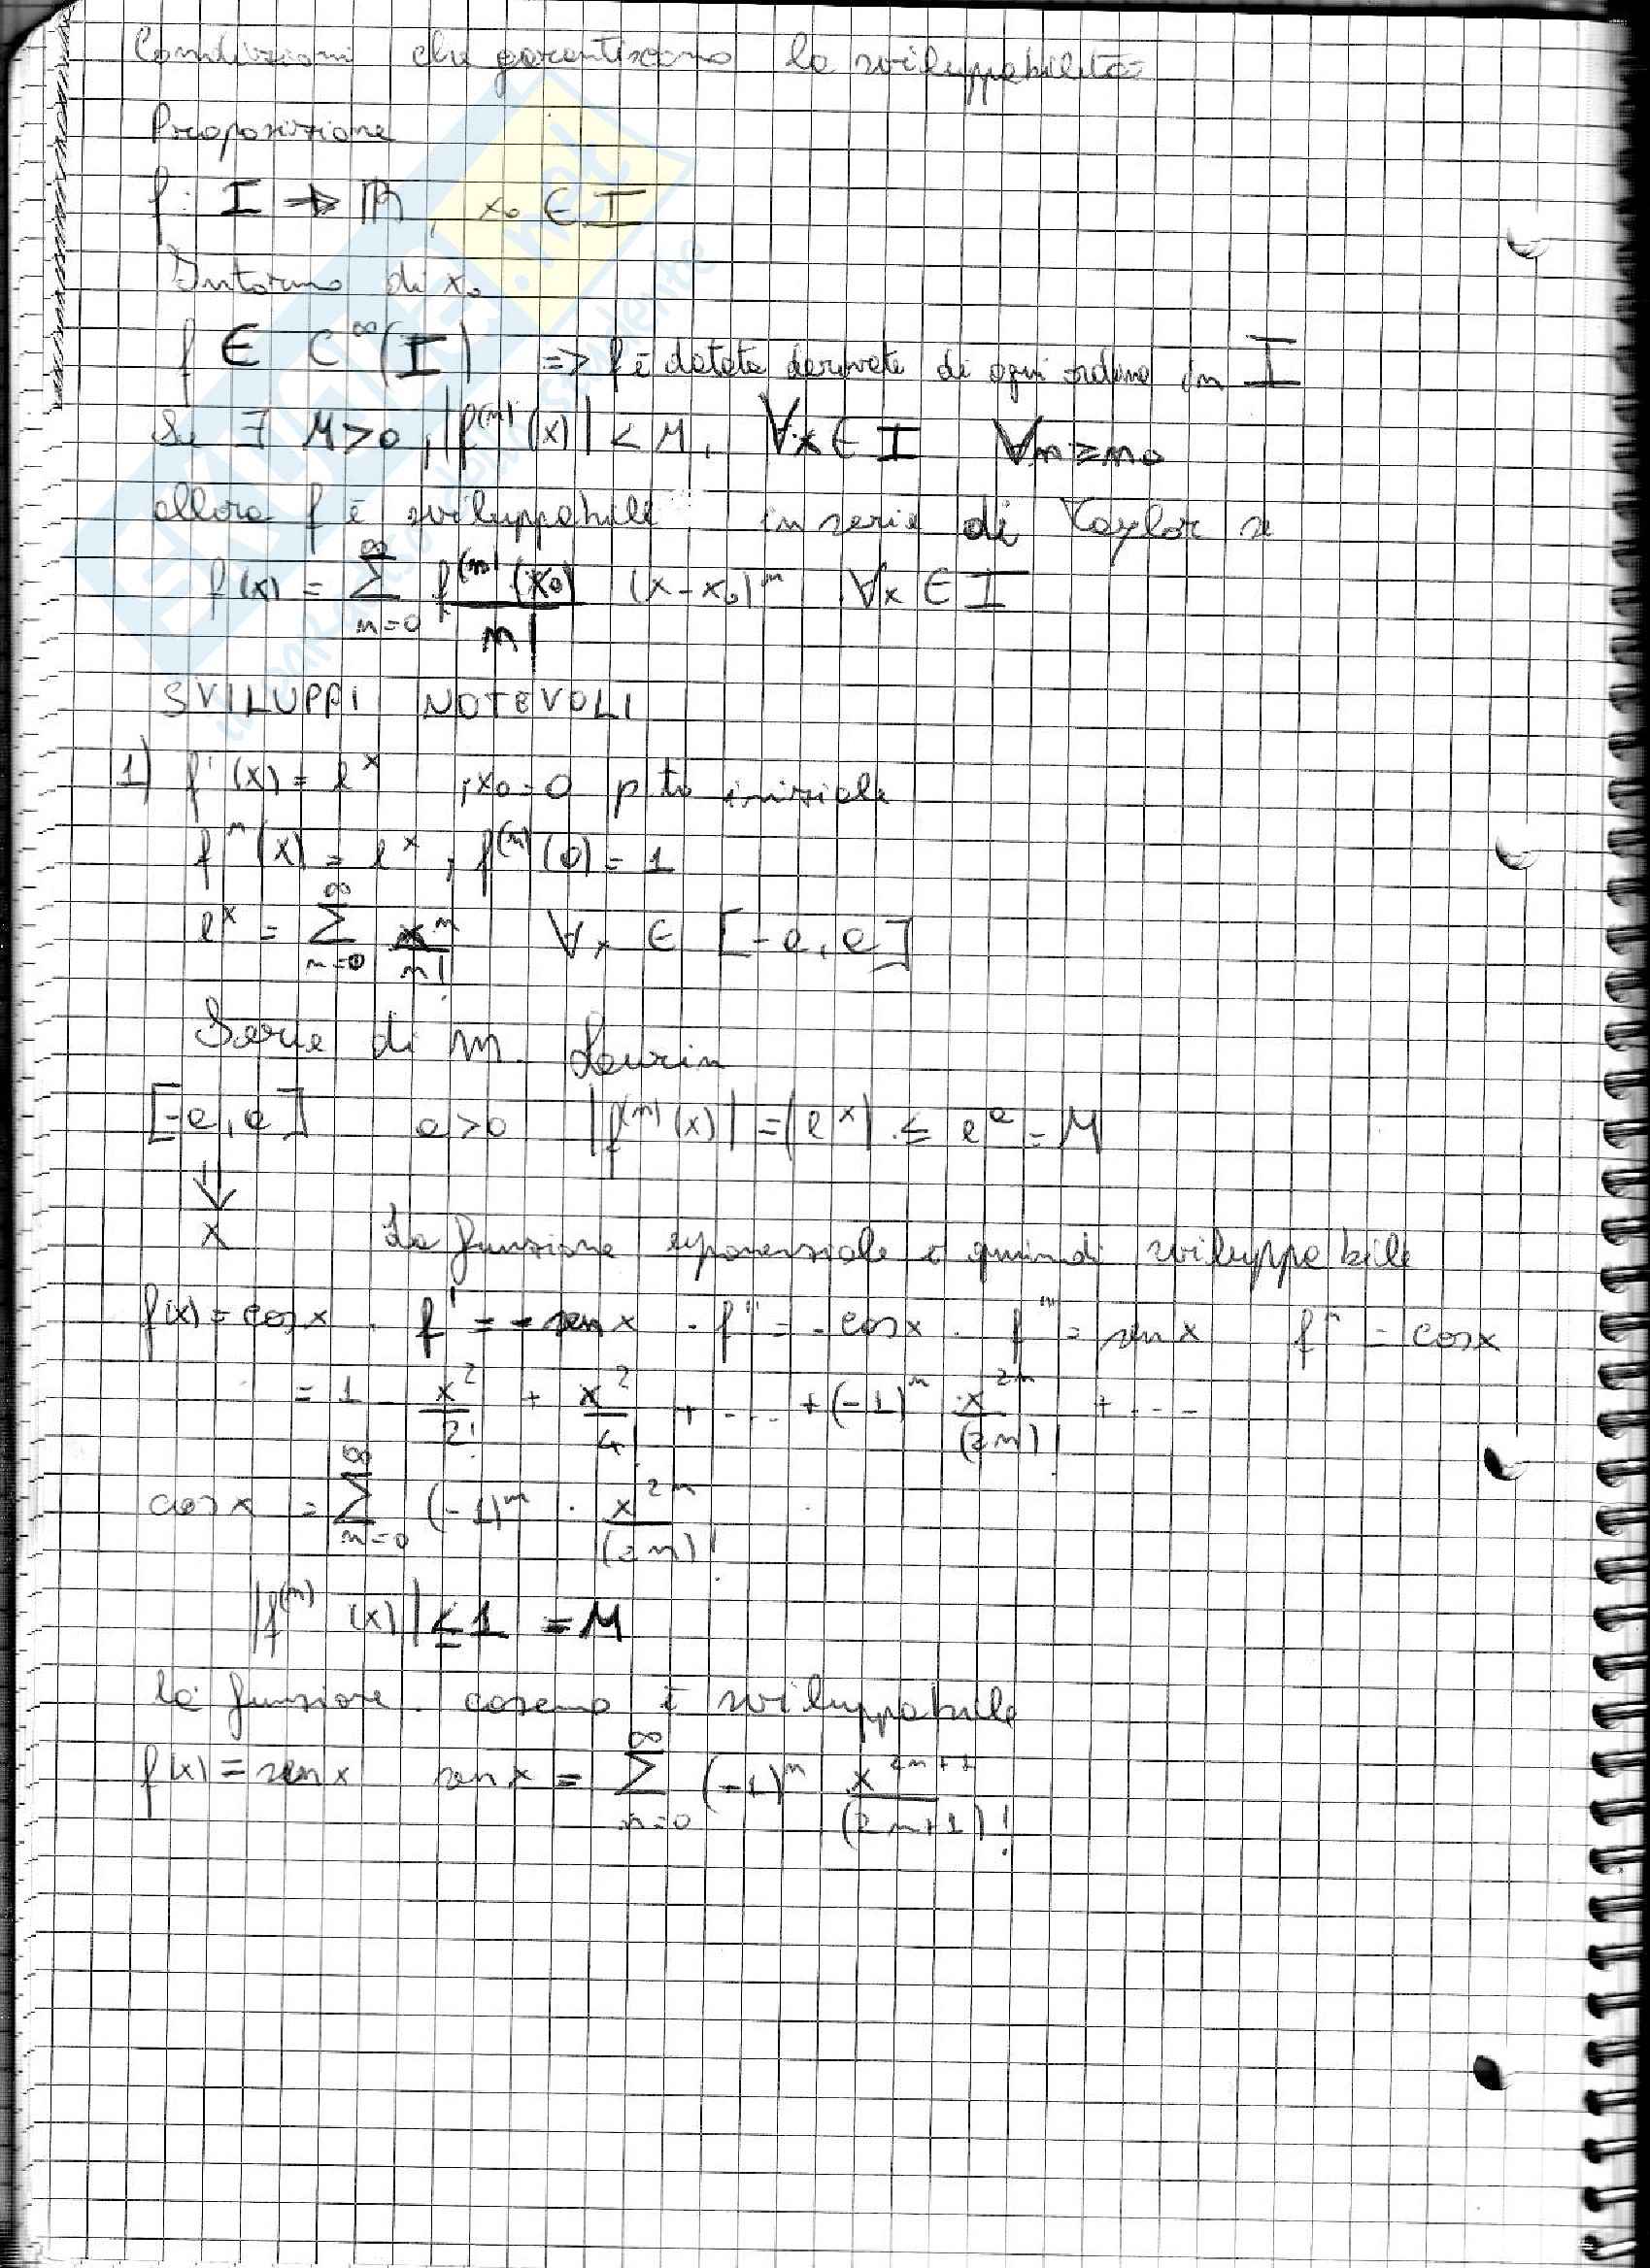 Condizioni che garantiscono la sviluppabilità
Proposizione
f: I → ℝ, x₀ ∈ I
Intorno di x₀
f ∈ C^∞(I) => f è dotata derivate di ogni ordine in I
Se ∃ M>0, |f^(n)(x)| < M, ∀x ∈ I ∀n≥n₀
allora f è sviluppabile in serie di Taylor e
f(x) = ∑_{n=0}^∞ f^(n)(x₀)/n! (x-x₀)^n ∀x ∈ I
SVILUPPI NOTEVOLI
1) f'(x) = e^x , x₀=0 p to iniziale
f^n(x) = e^x , f^(n)(0) = 1
e^x = ∑_{n=0}^∞ x^n/n! ∀x ∈ [-a, a]
Serie di M. Laurin
[-a, a] a>0 |f^(n)(x)| = |e^x| ≤ e^a = M
↓
x La funzione esponenziale è quindi sviluppabile
f(x) = cosx . f' = -senx . f'' = -cosx . f''' = senx f^n = cosx
= 1 - x²/2! + x²/4! + ... + (-1)^n x^2n/(2n)! + ...
cosx = ∑_{n=0}^∞ (-1)^n · x^2n/(2n)!
|f^(n)(x)| ≤ 1 = M
la funzione coseno è sviluppabile
f(x) = senx senx = ∑_{n=0}^∞ (-1)^n x^2n+1/(2n+1)!